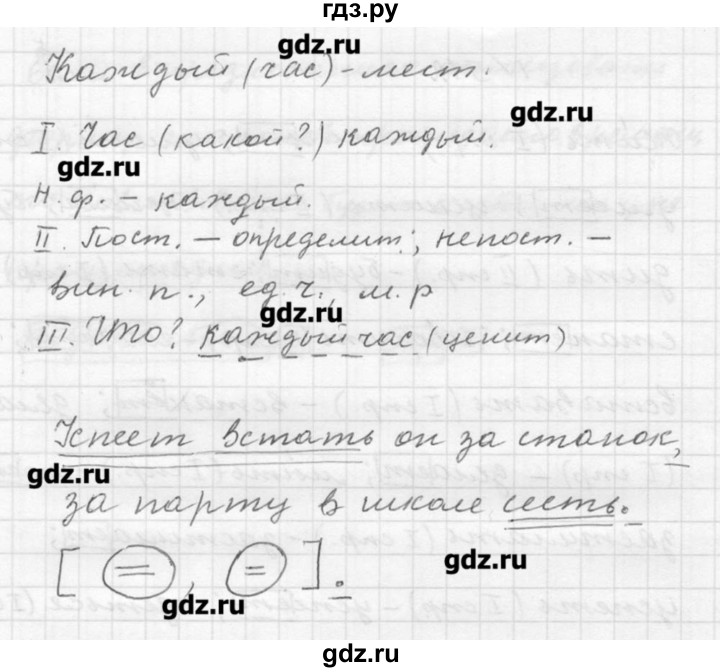 гдз.ру
gdz.ru
Каждый (час) - мест.
gdz.ru
I Час (какой?) каждый.
gdz.ru
Н ф. - каждый.
II. Пост. - определит.; непост. -
вин. п., ед. ч., м. р
gdz.ru
III. Что? каждый час (ценит)
Успеет встать он за станок,
gdz.ru
за парту в школе сесть.
gdz.ru
[ = , = ].
gdz.ru
gdz.ru